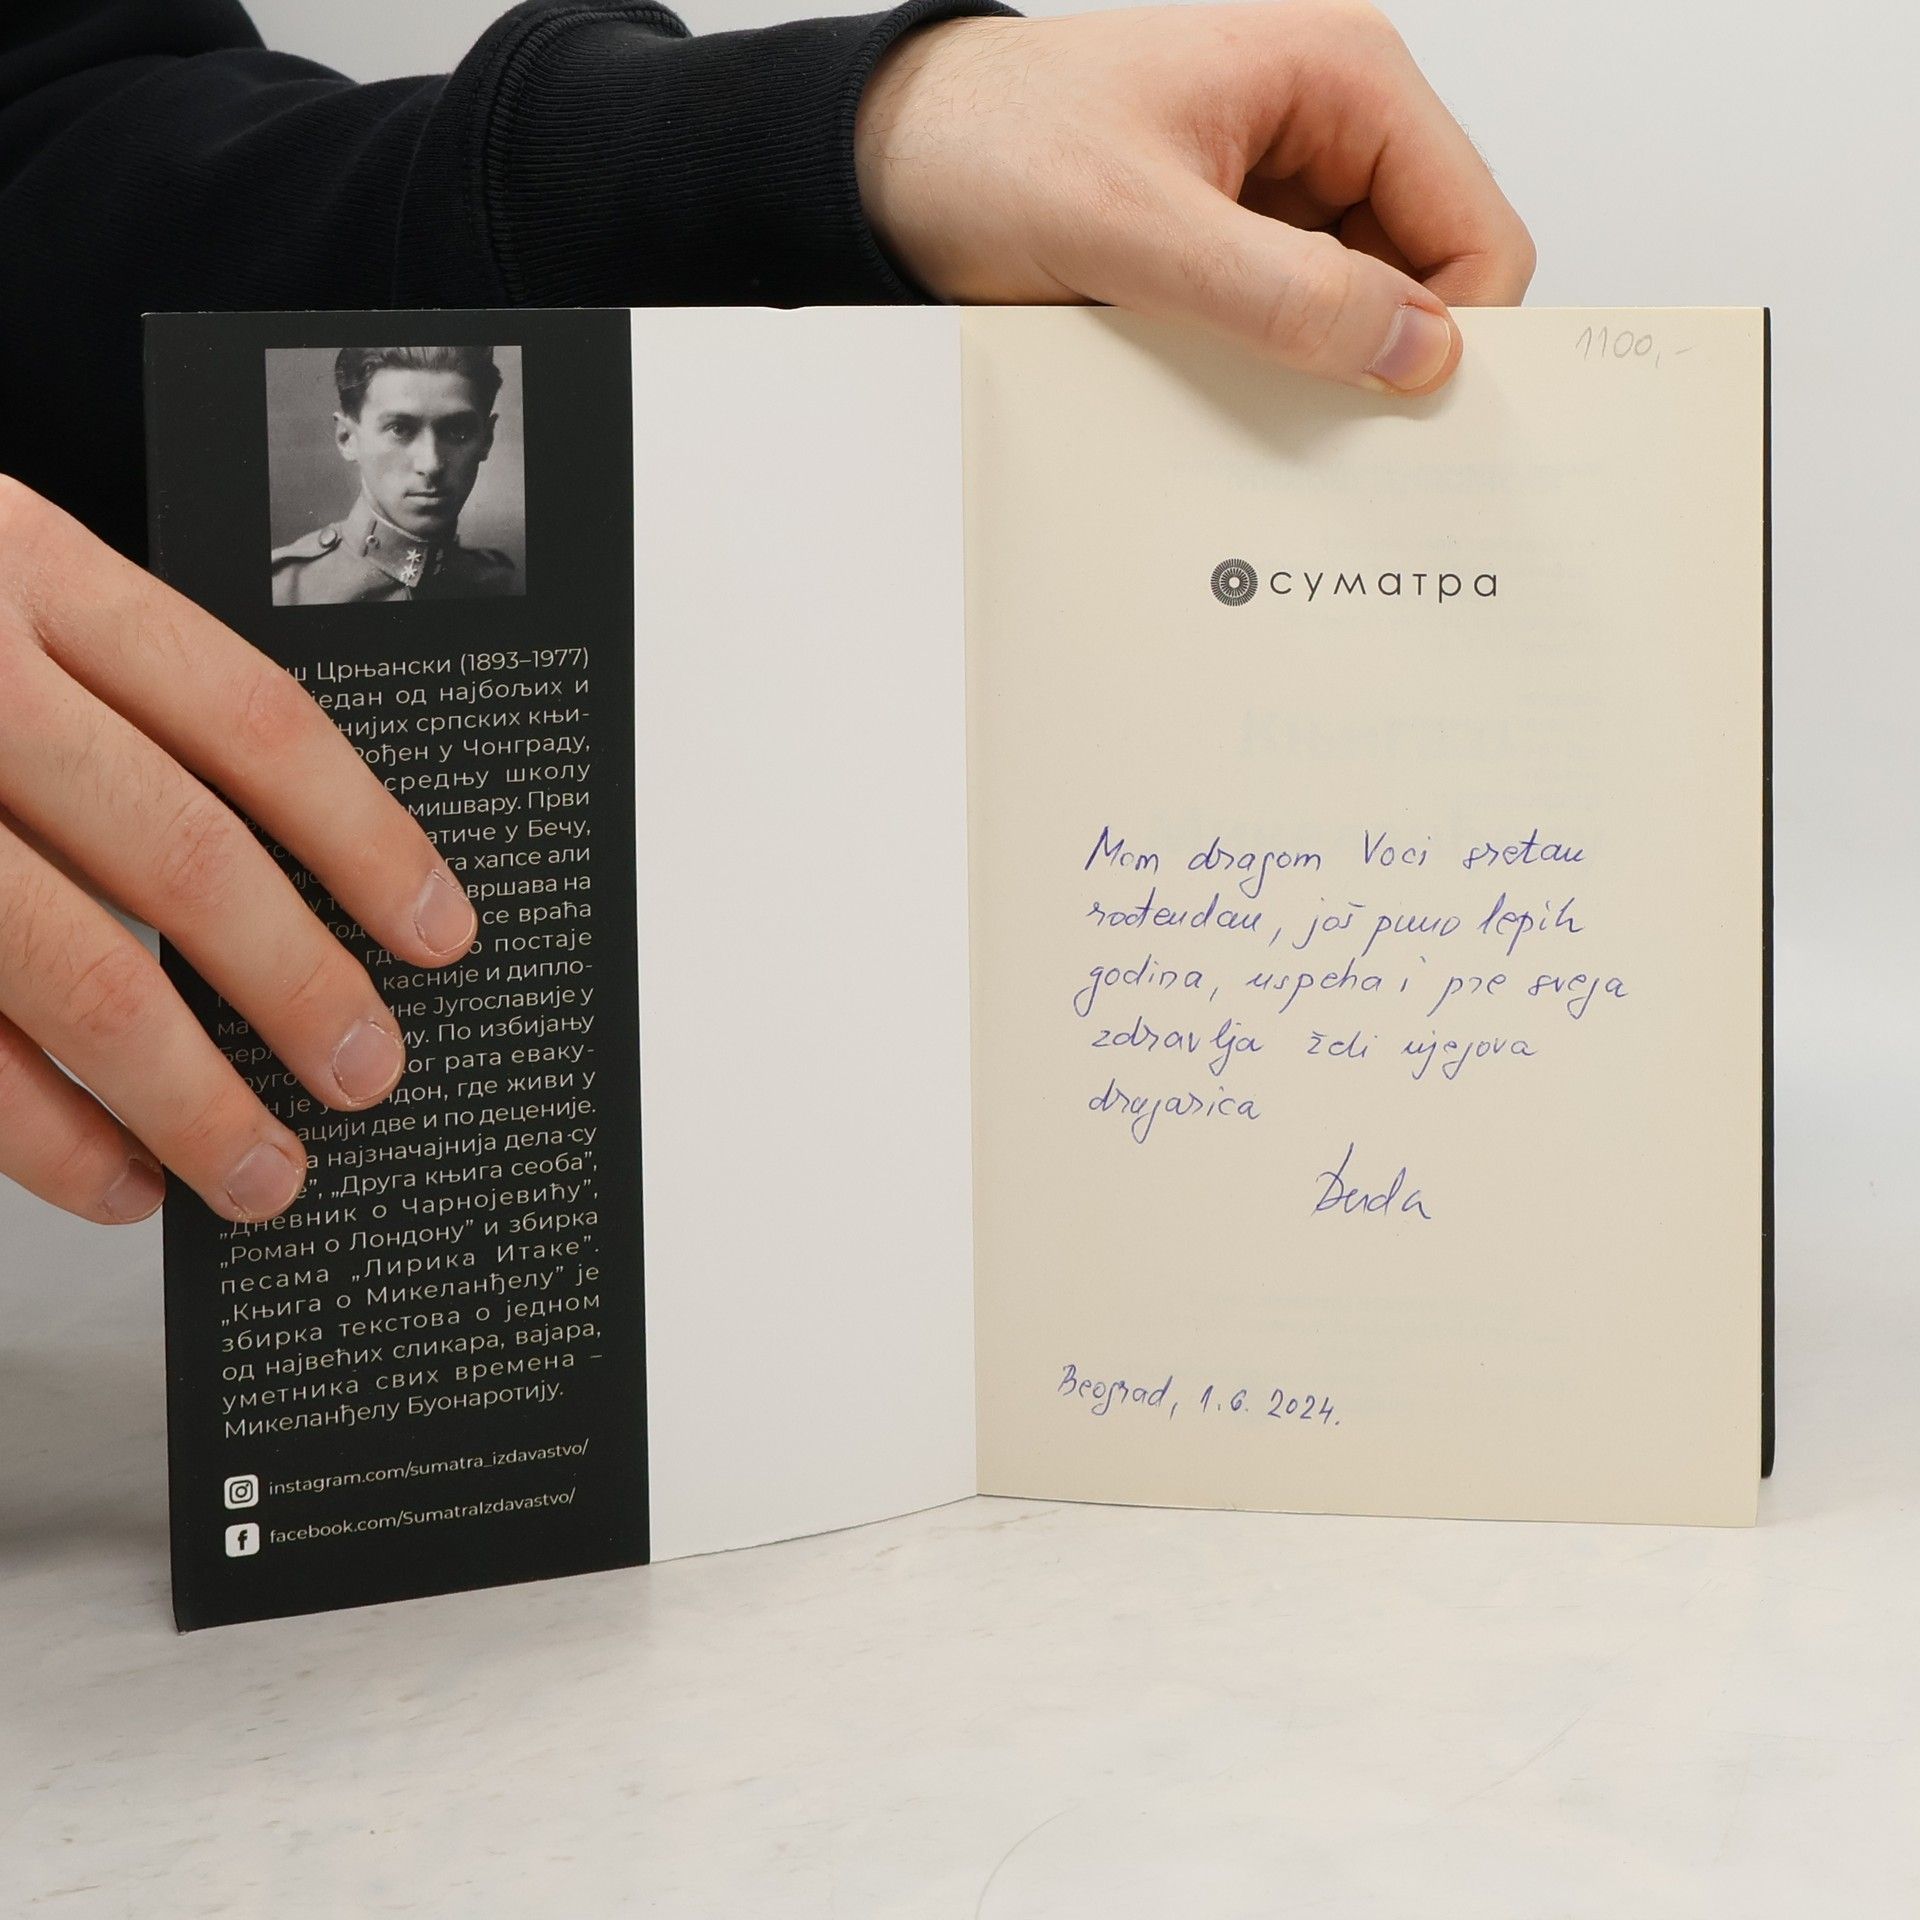 ш Црњански (1893–1977)
један од најбољих и
нијих српских књи-
ођен у Чонграду,
средњу школу
мишвару. Први
атиче у Бечу,
га хапсе али
вршава на
се враћа
постаје
касније и дипло-
не Југославије у
му. По избијању
ог рата еваку-
н је у ндон, где живи у
ацији две и по деценије.
а најзначајнија дела су
е”, „Друга књига сеоба”,
„Дневник о Чарнојевићу”,
„Роман о Лондону” и збирка
песама „Лирика Итаке”.
„Књига о Микеланђелу” је
збирка текстова о једном
од највећих сликара, вајара,
уметника свих времена –
Микеланђелу Буонаротију.
instagram.com/sumatra_izdavastvo/
facebook.com/SumatraIzdavastvo/
1100,-
суматра
Mom dragom Voci srećan
rođendan, još puno lepih
godina, uspeha i pre svega
zdravlja želi njegova
drugarica
Duda
Beograd, 1.6. 2024.